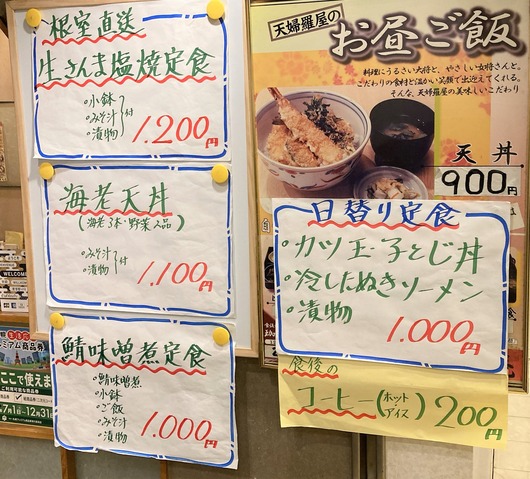 根室直送
生さんま塩焼定食
・小鉢
・みそ汁
・漬物
付
1.200円
海老天丼
(海老3本・野菜2品)
・みそ汁
・漬物
付
1.100円
鯖味噌煮定食
・鯖味噌煮
・小鉢
・ご飯
・みそ汁
・漬物
1.000円
天婦羅屋の
お昼ご飯
料理にうるさい大将と、やさしい女将さんと。
こだわりの食材と温かい笑顔で出迎えてくれる。
そんな、天婦羅屋の美味しいこだわり
天丼
900円
日替り定食
・カツ玉子とじ丼
・冷したぬきソーメン
・漬物
1.000円
食後の
コーヒー(ホット・アイス)200円
WELCOME
ミアム商品券
ここで使えま
7月1日〜12月31